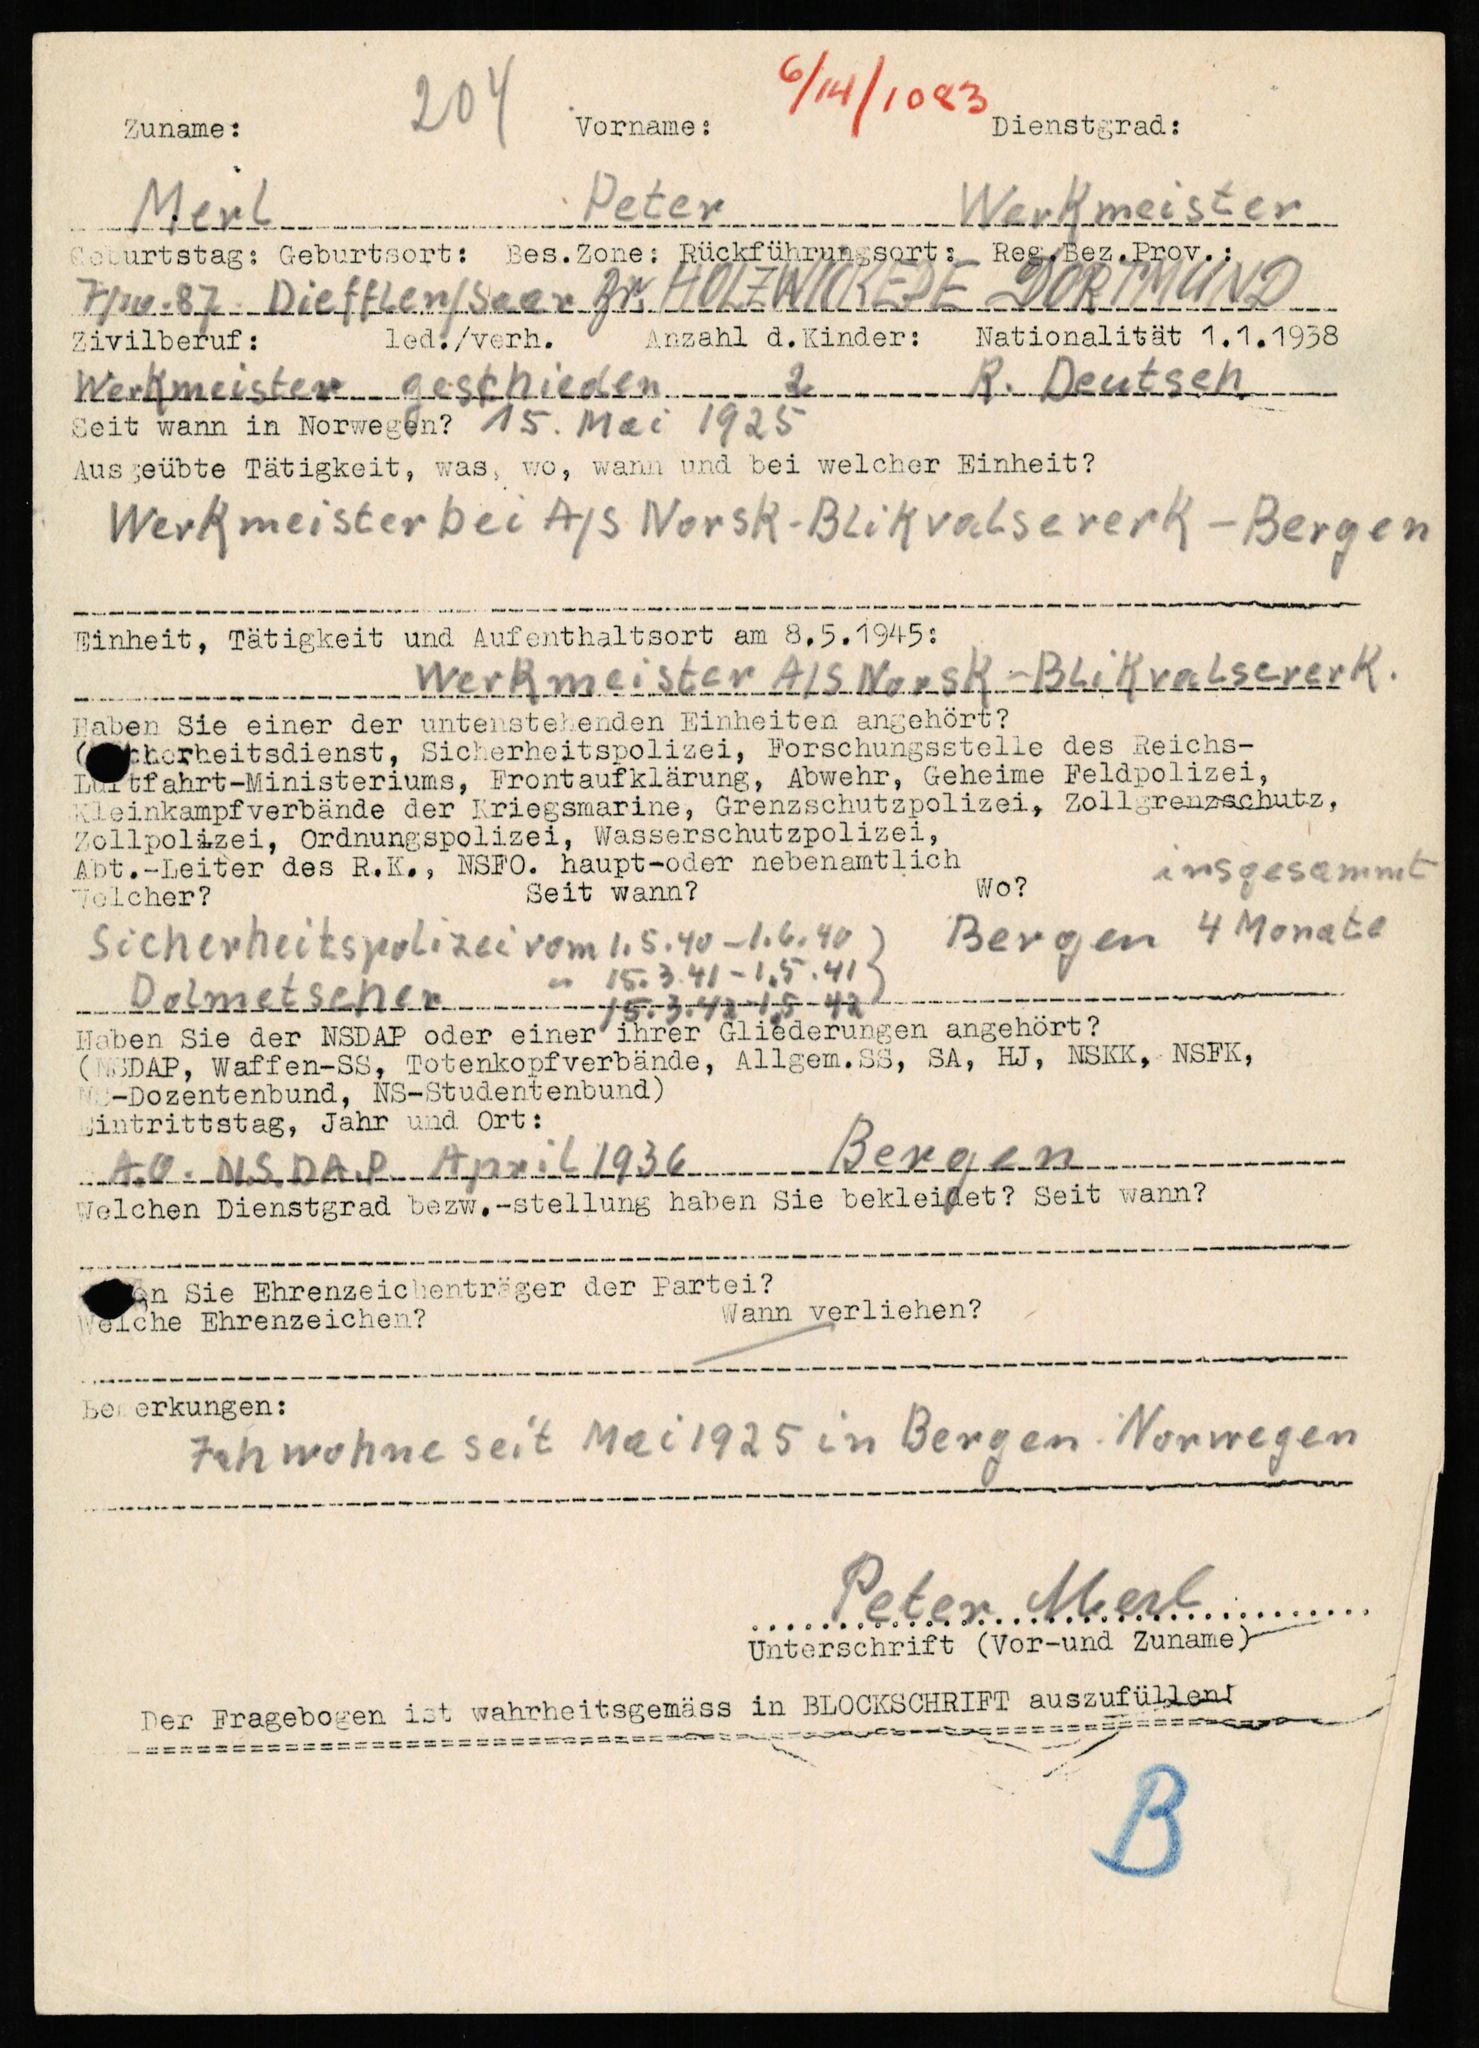 204 6/14/1083
Zuname: Vorname: Dienstgrad:
Merl Peter Werkmeister
Geburtstag: Geburtsort: Bes.Zone: Rückführungsort: Reg.Bez.Prov.:
87 Diefflen/Saar Br. HOLZWICKEDE DORTMUND
Zivilberuf: led./verh. Anzahl d.Kinder: Nationalität 1.1.1938
Werkmeister geschieden 2 R. Deutsch
Seit wann in Norwegen? 15. Mai 1925
Ausgeübte Tätigkeit, was, wo, wann und bei welcher Einheit?
Werkmeister bei A/S Norsk-Blikvalsererk - Bergen
Einheit, Tätigkeit und Aufenthaltsort am 8.5.1945:
Werkmeister A/S Norsk - Blikvalsererk.
Haben Sie einer der untenstehenden Einheiten angehört?
(Sicherheitsdienst, Sicherheitspolizei, Forschungsstelle des Reichs-
Luftfahrt-Ministeriums, Frontaufklärung, Abwehr, Geheime Feldpolizei,
Kleinkampfverbände der Kriegsmarine, Grenzschutzpolizei, Zollgrenzschutz,
Zollpolizei, Ordnungspolizei, Wasserschutzpolizei,
Abt.-Leiter des R.K., NSFO. haupt-oder nebenamtlich
Welcher? Seit wann? Wo? insgesammt
Sicherheitspolizei vom 1.5.40 - 1.6.40 Bergen 4 Monate
" 15.3.41 - 1.5.41
Dolmetscher 15.3.42 - 1.5.42
Haben Sie der NSDAP oder einer ihrer Gliederungen angehört?
(NSDAP, Waffen-SS, Totenkopfverbände, Allgem.SS, SA, HJ, NSKK, NSFK,
NS-Dozentenbund, NS-Studentenbund)
Eintrittstag, Jahr und Ort:
A.O. N.S.D.A.P. April 1936 Bergen
Welchen Dienstgrad bezw.-stellung haben Sie bekleidet? Seit wann?
Sie Ehrenzeichenträger der Partei?
Welche Ehrenzeichen? Wann verliehen?
Bemerkungen:
Ich wohne seit Mai 1925 in Bergen. Norwegen
Peter Merl
Unterschrift (Vor-und Zuname)
Der Fragebogen ist wahrheitsgemäss in BLOCKSCHRIFT auszufüllen!
B